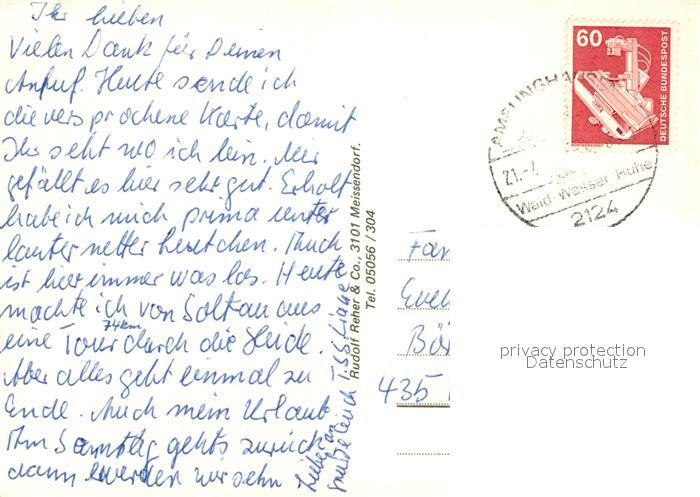 Ihr lieben
Vielen Dank für Deinen
Anruf. Heute sende ich
die versprochene Karte, damit
Ihr seht wo ich bin. Mir
gefällt es hier sehr gut. Erholt
habe ich mich prima unter
lauter netter Leutchen. Auch
ist hier immer was los. Heute
machte ich von Soltau aus
74 km
eine Tour durch die Heide.
Aber alles geht einmal zu
Ende. Auch mein Urlaub
Am Samstag gehts zurück
dann werden wir sehn
Rudolf Reher & Co., 3101 Meissendorf.
Tel. 05056 / 304
60
DEUTSCHE BUNDESPOST
AMELINGHAUSEN
21.-7.
Wald-Wasser-Ruhe
2124
Fam
Eveli
435
privacy protection
Datenschutz